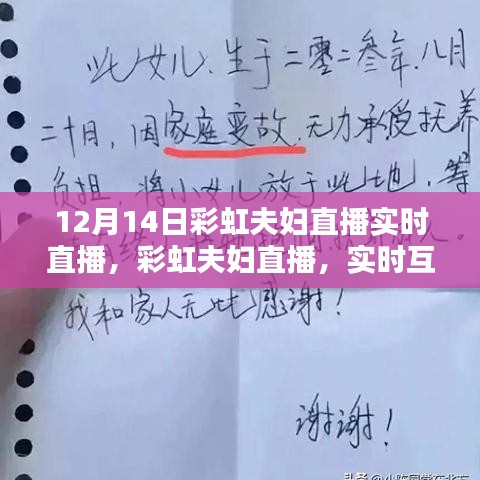 此女儿.生于二零二叁年.八月
二十月,因家庭变故.无力承受抚养
负担,将小女儿放于此地,等
12月14日彩虹夫妇直播实时
直播,彩虹夫妇直播,实时互
我和家人无比感谢!
谢谢!